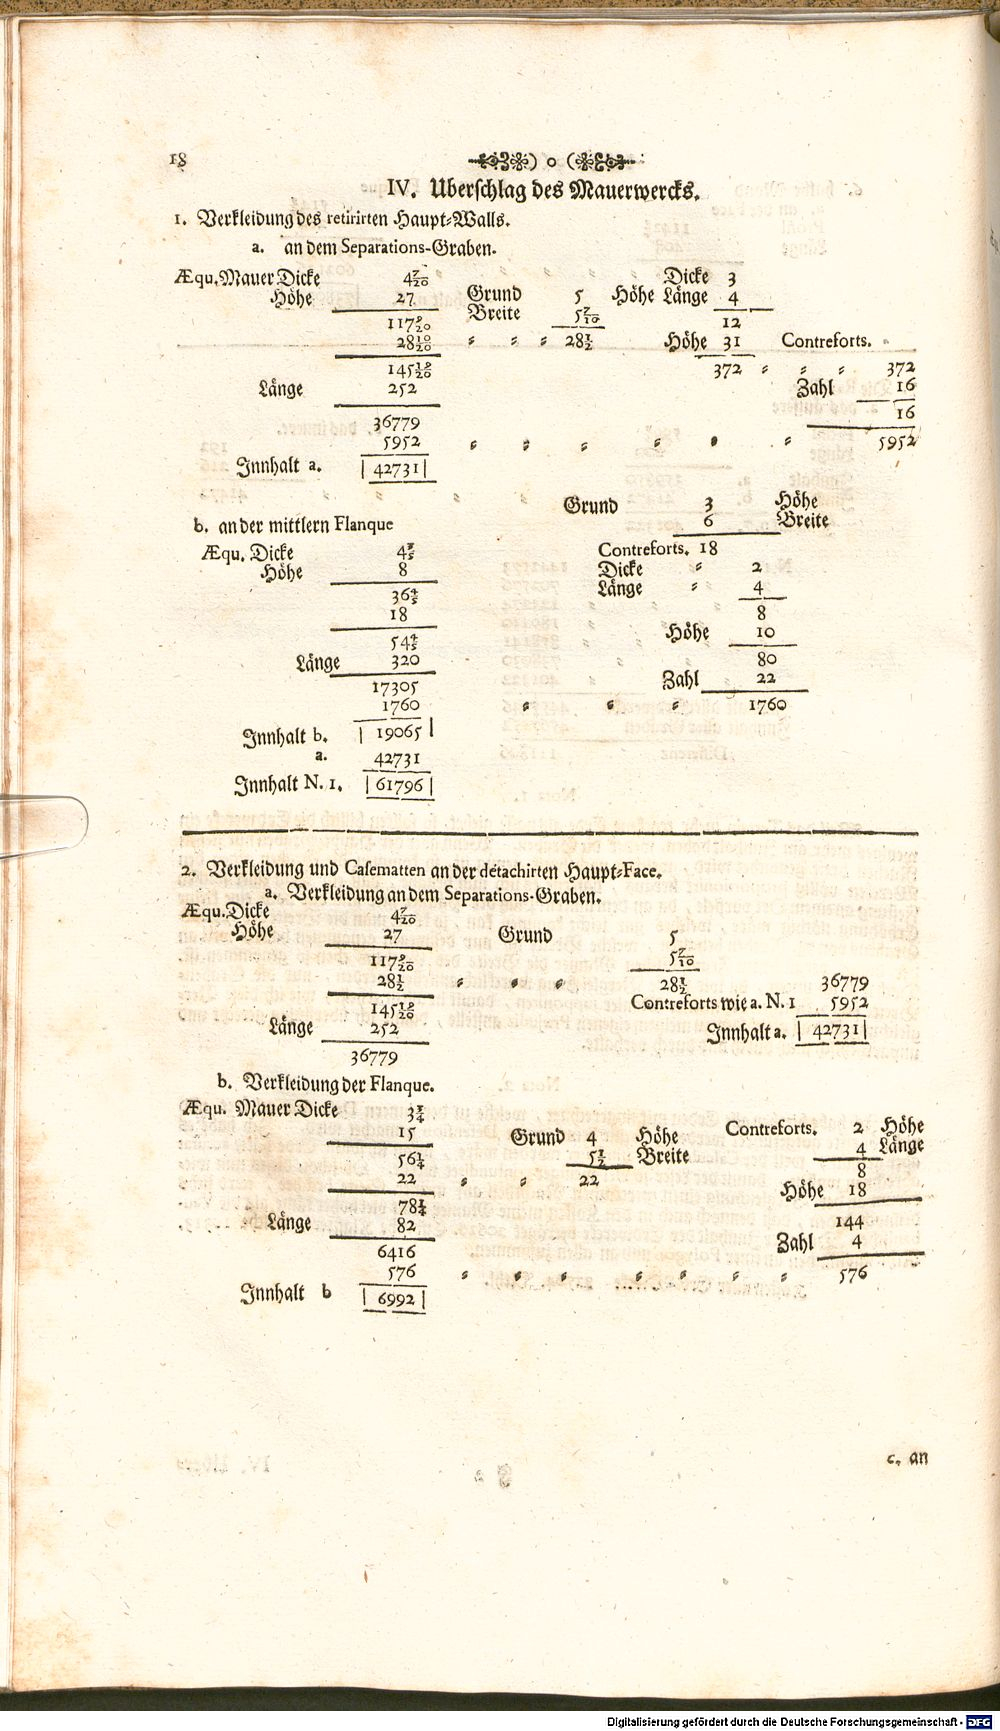 18
IV. Uberschlag des Mauerwercks.
1. Verkleidung des retirirten Haupt-Walls.
a. an dem Separations-Graben.
Æqu. Mauer Dicke 4 7/20 Dicke 3
Höhe 27 Grund 5 Höhe Länge 4
117 9/20 Breite 5 7/10 12
28 10/20 28 1/2 Höhe 31 Contreforts.
145 19/20 372 372
Länge 252 Zahl 16
36779 16
5952 5952
Innhalt a. 42731
Grund 3 Höhe
6 Breite
b. an der mittlern Flanque
Æqu. Dicke 4 3/5 Contreforts. 18
Höhe 8 Dicke 2
36 4/5 Länge 4
18 8
54 4/5 Höhe 10
Länge 320 80
17305 Zahl 22
1760 1760
Innhalt b. 19065
a. 42731
Innhalt N. 1. 61796
2. Verkleidung und Casematten an der détachirten Haupt-Face.
a. Verkleidung an dem Separations-Graben.
Æqu. Dicke 4 7/20
Höhe 27 Grund 5
117 9/20 5 7/10
28 1/2 28 1/2 36779
145 19/20 Contreforts wie a. N. 1 5952
Länge 252 Innhalt a. 42731
36779
b. Verkleidung der Flanque.
Æqu. Mauer Dicke 3 3/4 Contreforts. 2 Höhe
15 Grund 4 Höhe 4 Länge
56 1/4 5 1/2 Breite 8
22 22 Höhe 18
78 1/4 144
Länge 82 Zahl 4
6416
576 576
Innhalt b 6992
c. an
Digitalisierung gefördert durch die Deutsche Forschungsgemeinschaft - DFG